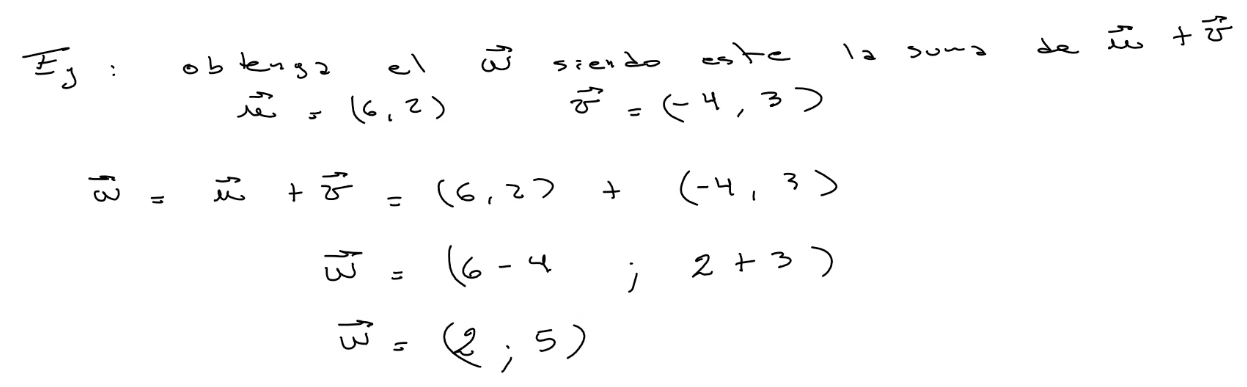 Ej : obtenga el w⃗ siendo este la suma de u⃗ + v⃗
u⃗ = (6, 2) v⃗ = (-4, 3)
w⃗ = u⃗ + v⃗ = (6, 2) + (-4, 3)
w⃗ = (6 - 4 ; 2 + 3)
w⃗ = (2 ; 5)